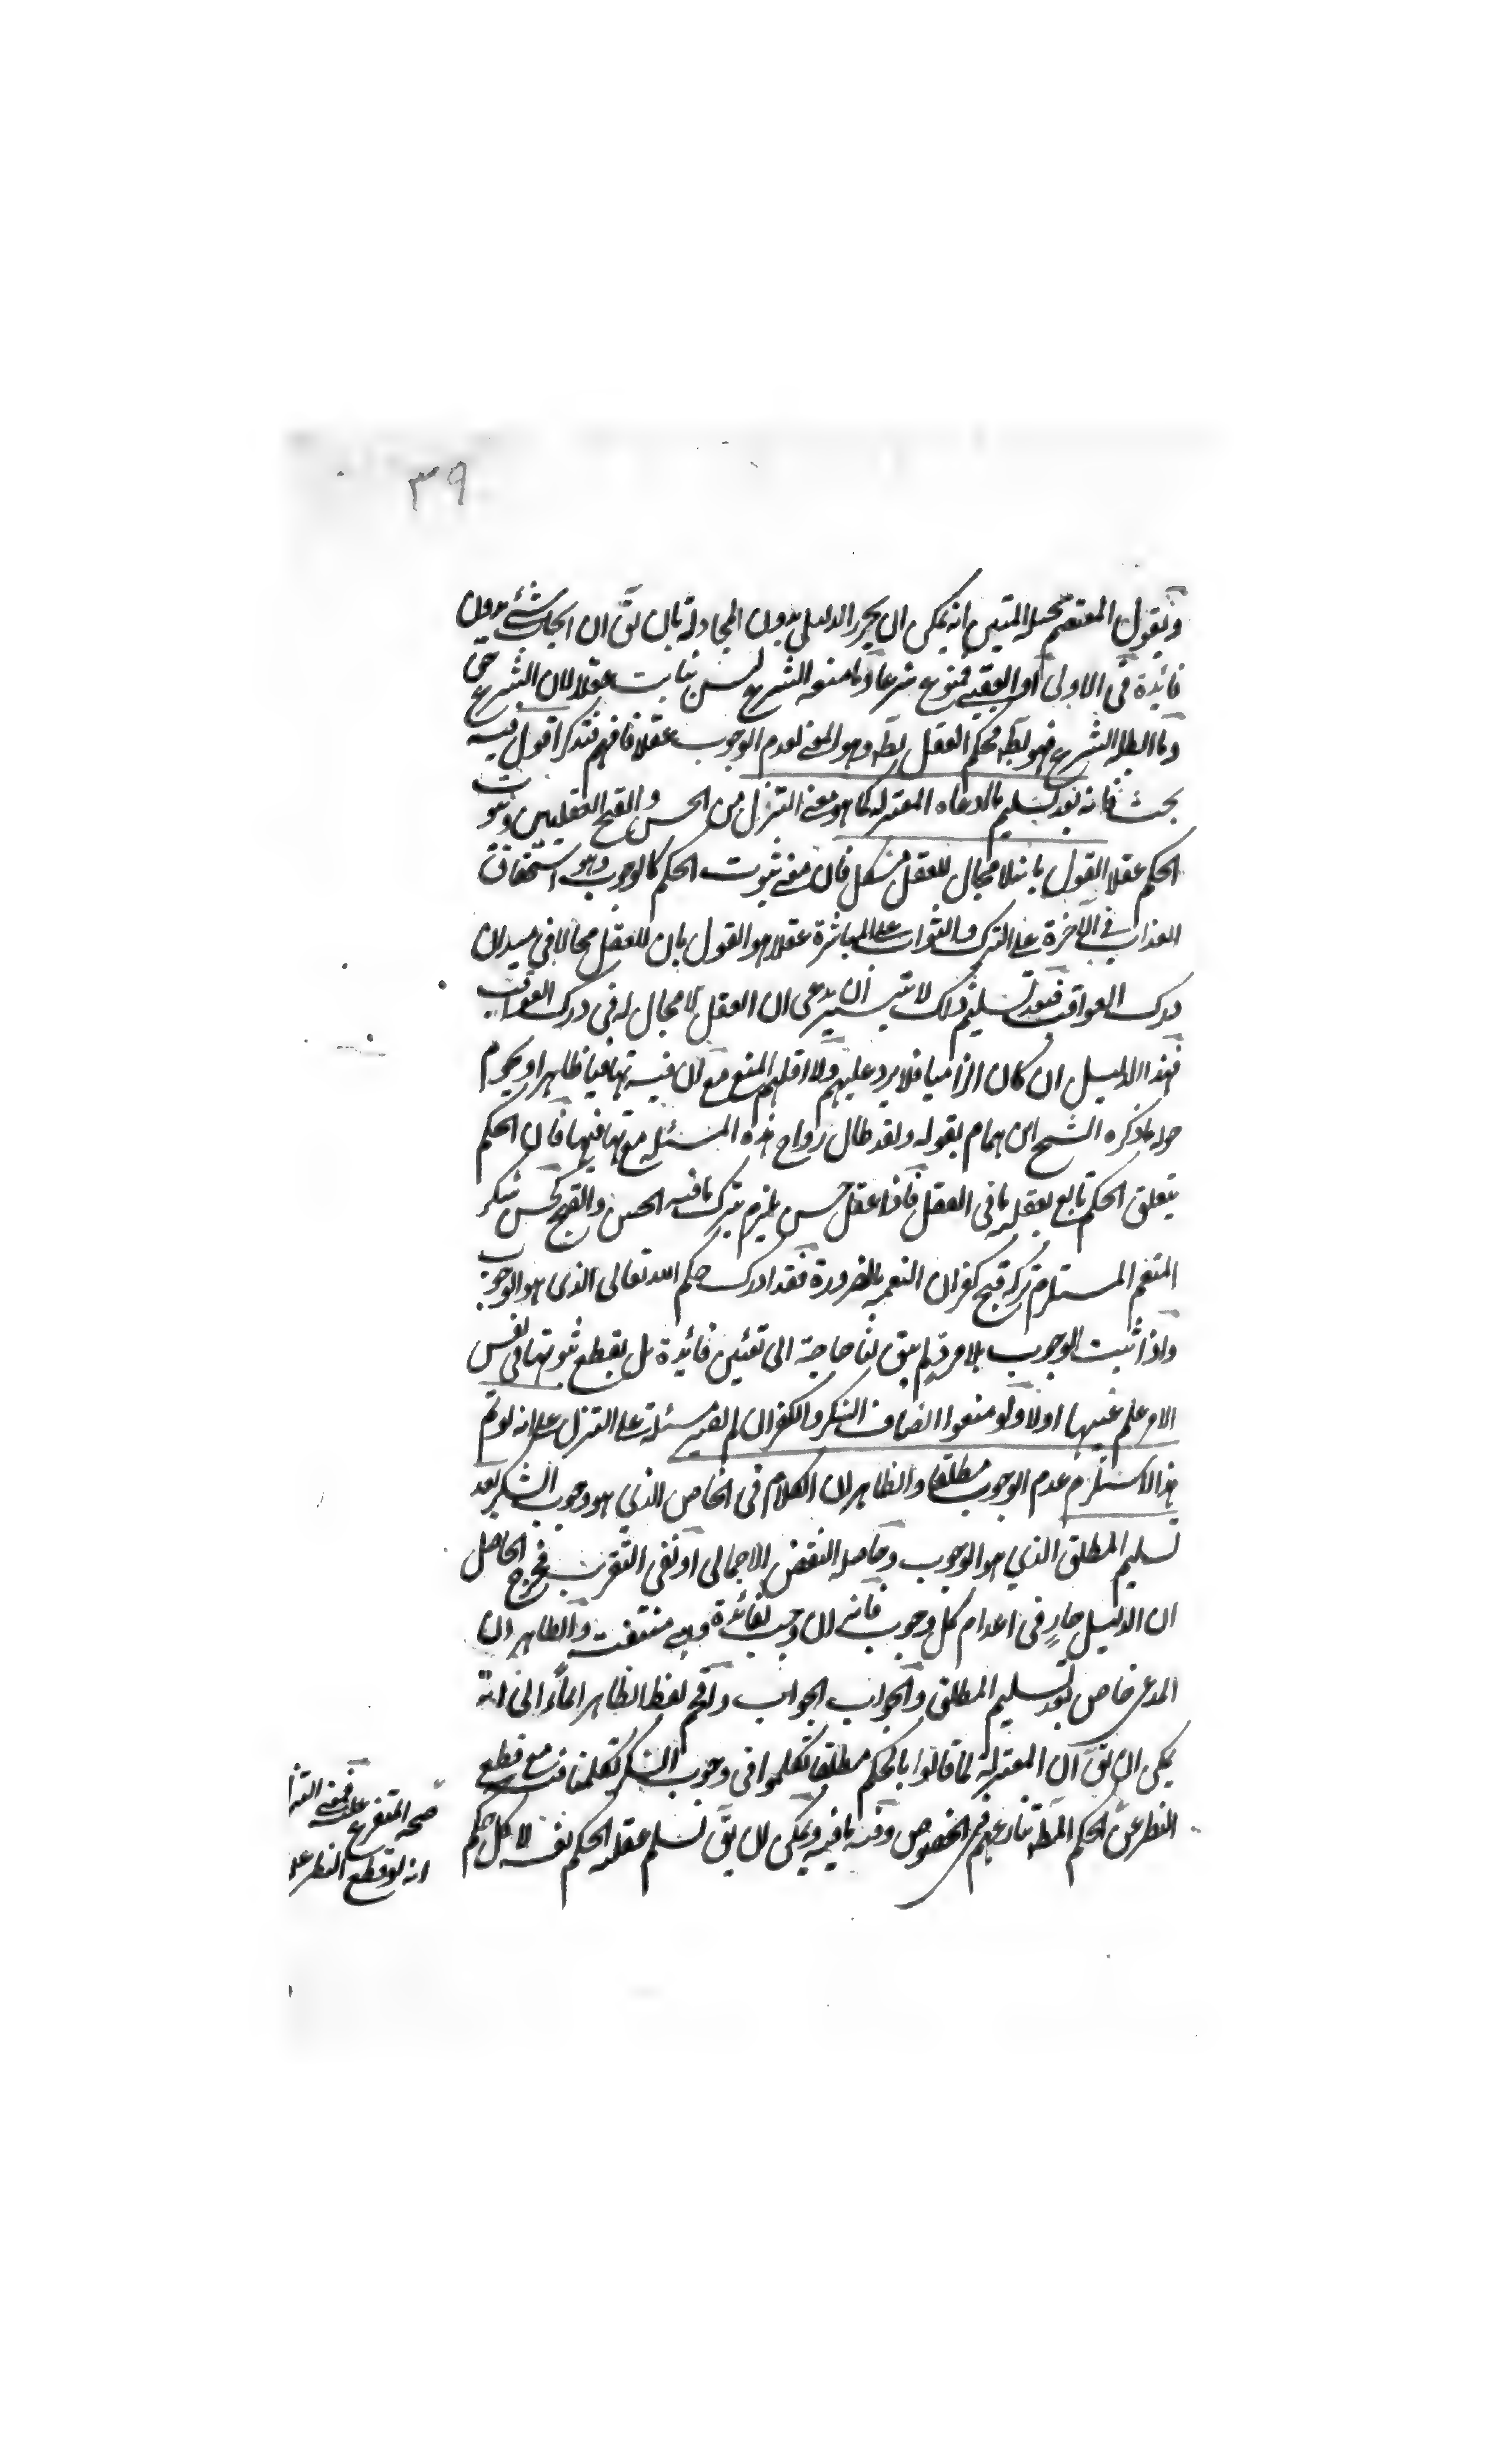 ٣٩
ويقول المعتصم بحبله المتين انه يمكن ان يحرر الدليل بدون المجادلة بان يق ان ايجاب شئ بدون
فائدة في الاولى او العقبى ممنوع شرعا وما منعه الشرع ليس بثابت عقلا لان الشرع حق
وما ابطله الشرع فهو بط فحكم العقل بط وهو المعنى لعدم الوجوب عقلا فافهم فتذكر اقول فيه
بحث فانه بعد تسليم ما ادعاه المعتزلة كما هو معنى التنزل من الحسن والقبح العقليين وثبوت
الحكم عقلا القول بانه لا مجال للعقل مشكل فان معنى ثبوت الحكم كالوجوب وهو استحقاق
العذاب في الآخرة على الترك والثواب على المباشرة عقلا هو القول بان للعقل مجالا في ميدان
درك العواقب فبعد تسليم ذلك لا يتيسر ان يدعى ان العقل لا مجال له في درك العواقب
فهذا الدليل ان كان الزاميا فلا يرد عليهم ولا اقلهم المنع مع ان فيه تهافتا ظاهرا ويحوم
حوله ما ذكره الشيخ ابن همام بقوله ولقد طال رواج هذه المسئلة مع تهافتها فان الحكم
يتعلق الحكم تابع لعقلية ما في العقل فاذا عقل حسن يلزم بترك ما فيه الحسن والقبح كحسن شكر
المنعم المستلزم تركه قبح كفران النعمة بالضرورة فقد ادرك حكم الله تعالى الذي هو الوجوب
واذا ثبت الوجوب بلا مرد لم يبق لنا حاجة الى تعيين فائدة بل يقطع ثبوتها في نفس
الامر علم عينها اولا ولو منعوا اتصاف الشكر والكفران لم تصر مسئلة على التنزل على انه لو تم
هذا لاستلزم عدم الوجوب مطلقا والظاهر ان الكلام في الخاص الذي هو وجوب الشكر بعد
تسليم المطلق الذي هو الوجوب وحاصله النقض الاجمالي او نفي التقريب فخرج الحاصل
ان الدليل جار في اعدام كل وجوب فانه ان وجب لفائدة وهى منتفية والظاهر ان
المدعى خاص بعد تسليم المطلق والجواب الجواب واقحم لفظ الظاهر ايماء الى انه
يمكن ان يق ان المعتزلة لما قالوا بالحكم مطلقا تكلموا في وجوب الشكر تكلمنا فيه مع قطع
النظر عن الحكم المط تنازعهم في الخصوص وفيه ما فيه ويمكن ان يق نسلم عقلية الحكم نفسه لا كل حكم
فمعنى التنزل
صحة المتفرع عليه
انه لو قطع النظر عن